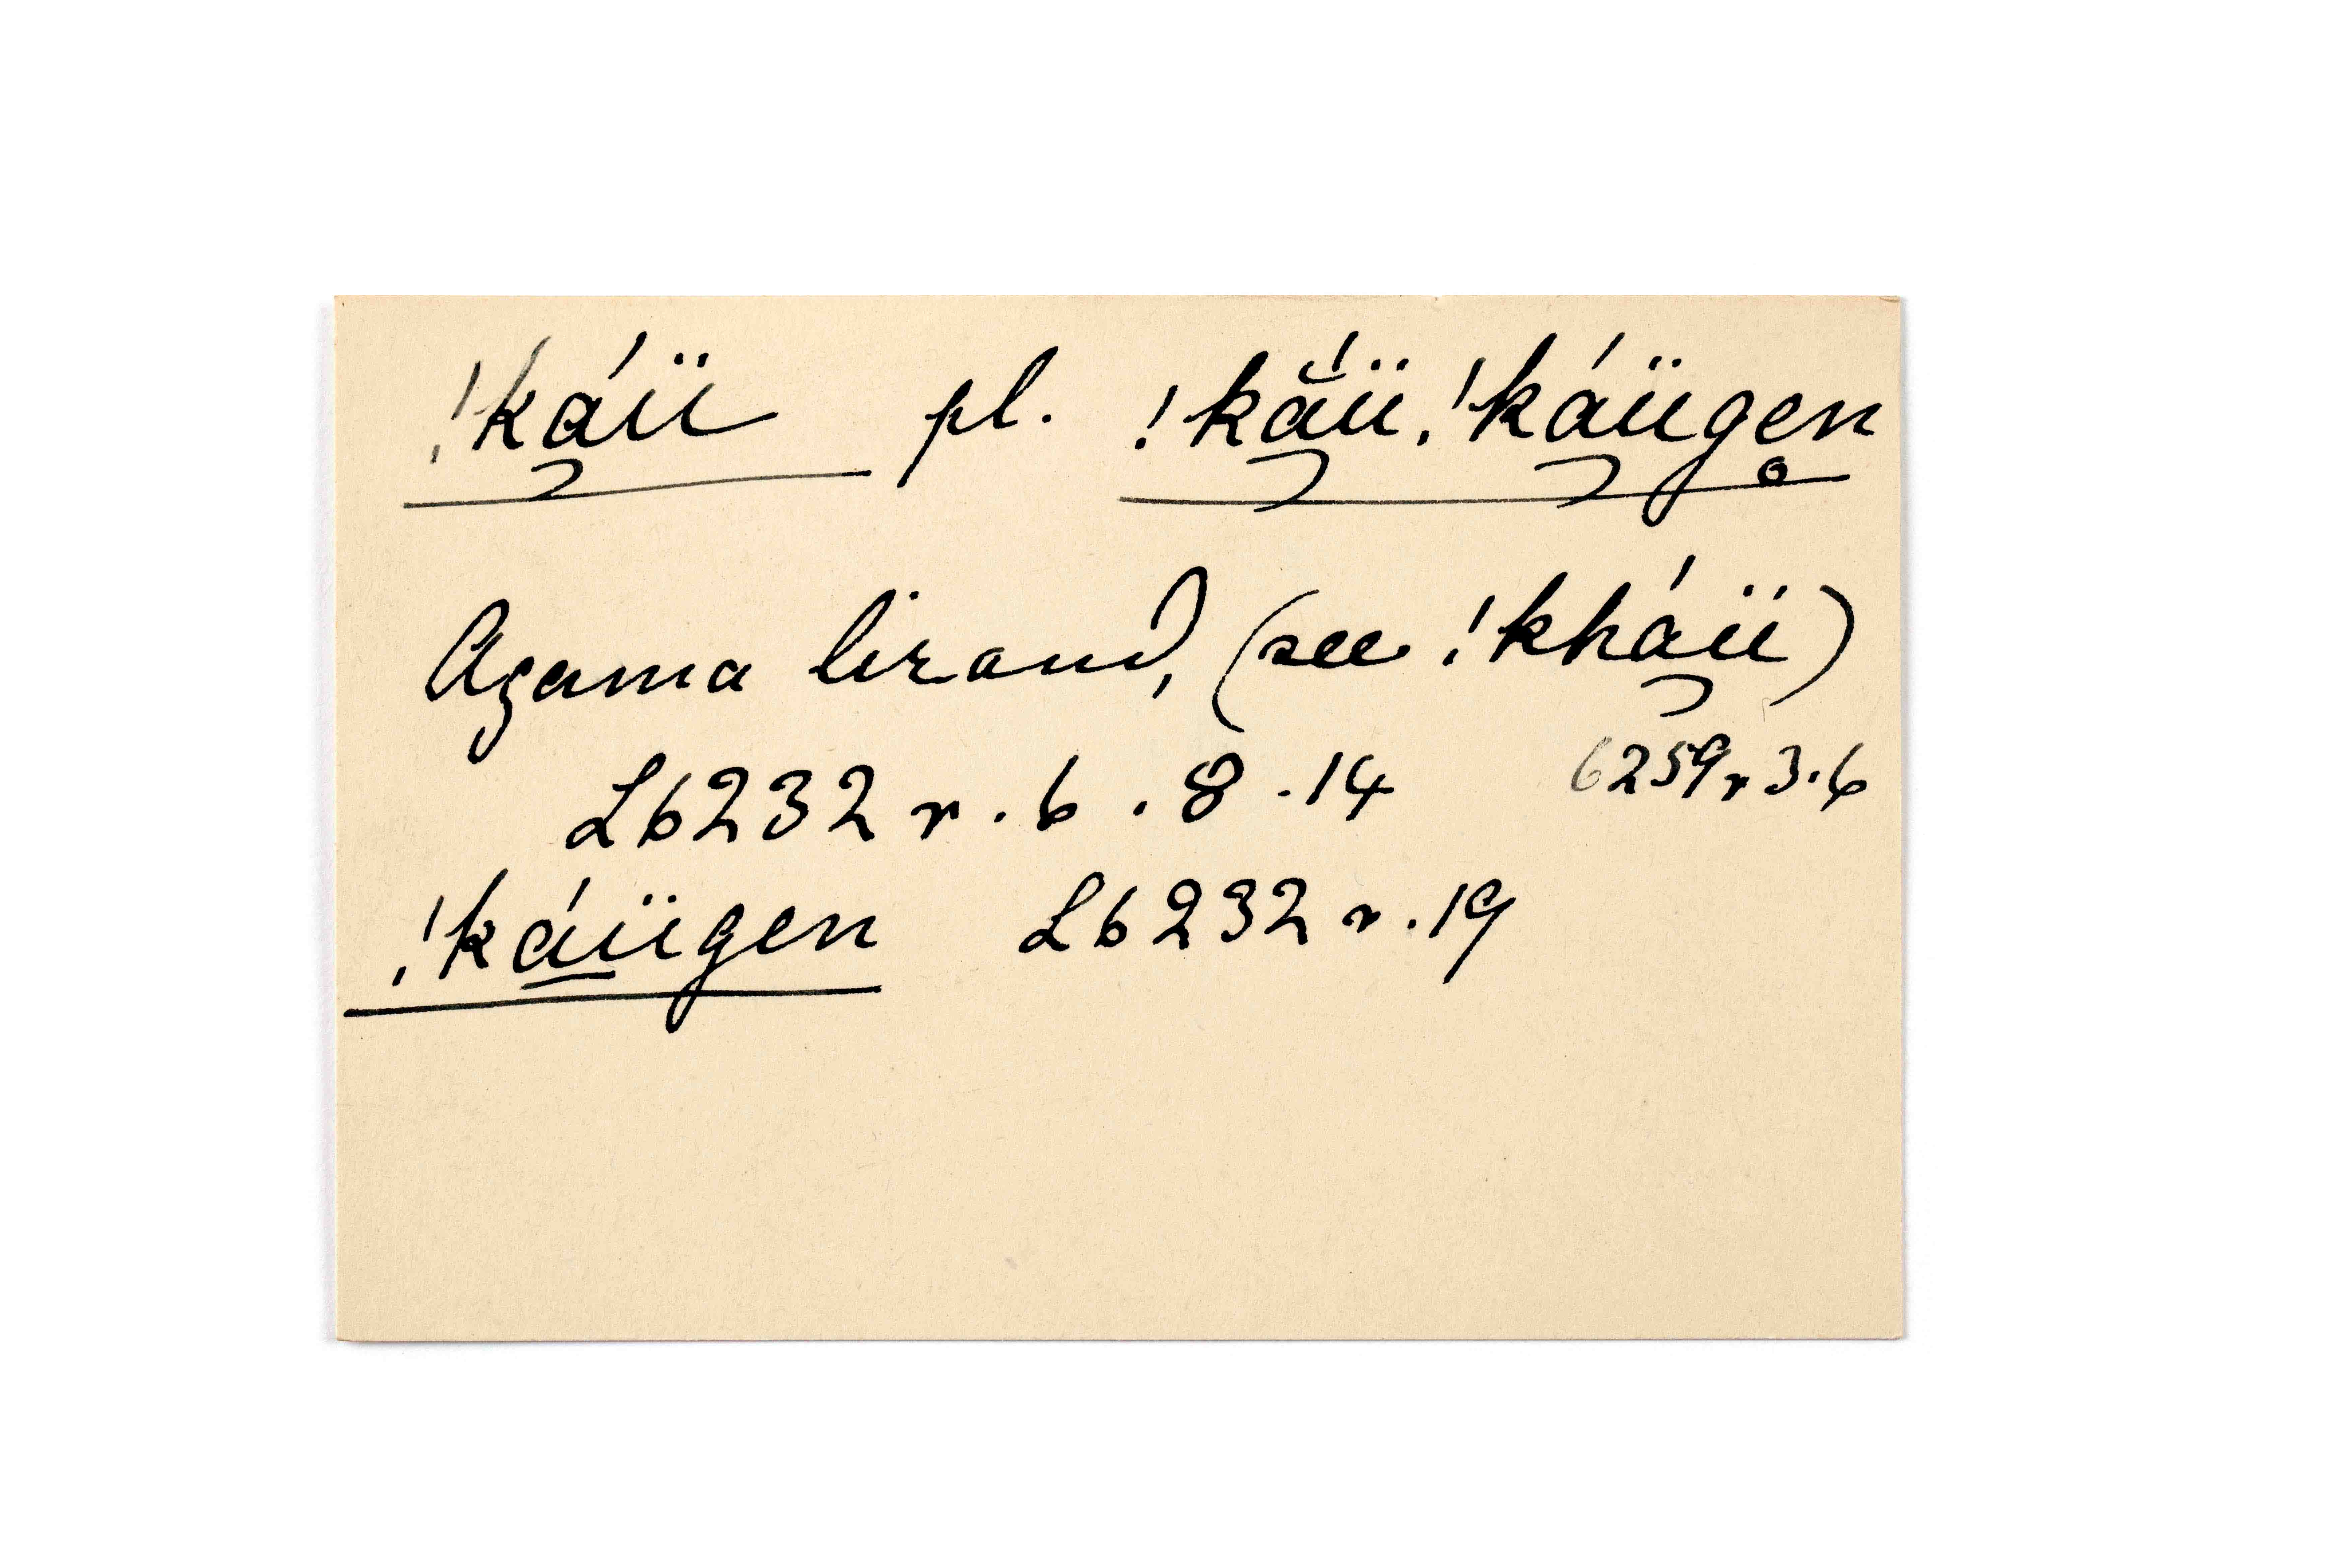 !káü pl. !kắü, !káügen
Agama lizard, (see !kháü)
L6232 r. 6 . 8 . 14 6259 r 3.6
!káügen L6232 r. 19